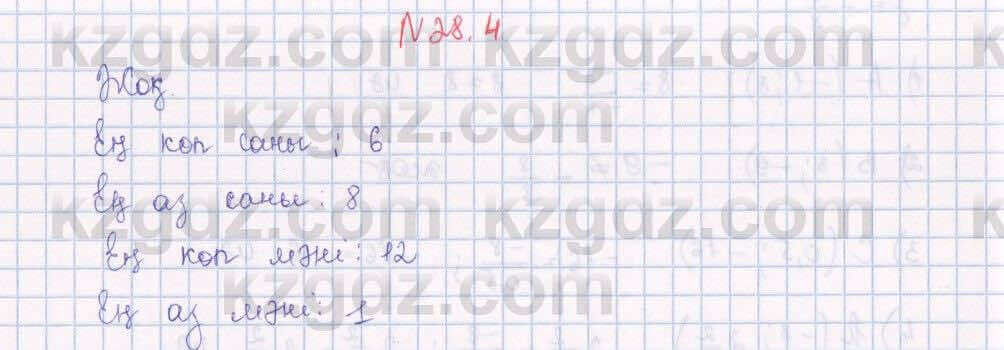 N 28.4
Жоқ.
Ең көп саны: 6
Ең аз саны: 8
Ең көп мәні: 12
Ең аз мәні: 1
kzgdz.com kzgdz.com
kzgdz.com
kzgdz.com kzgdz.com
kzgdz.com